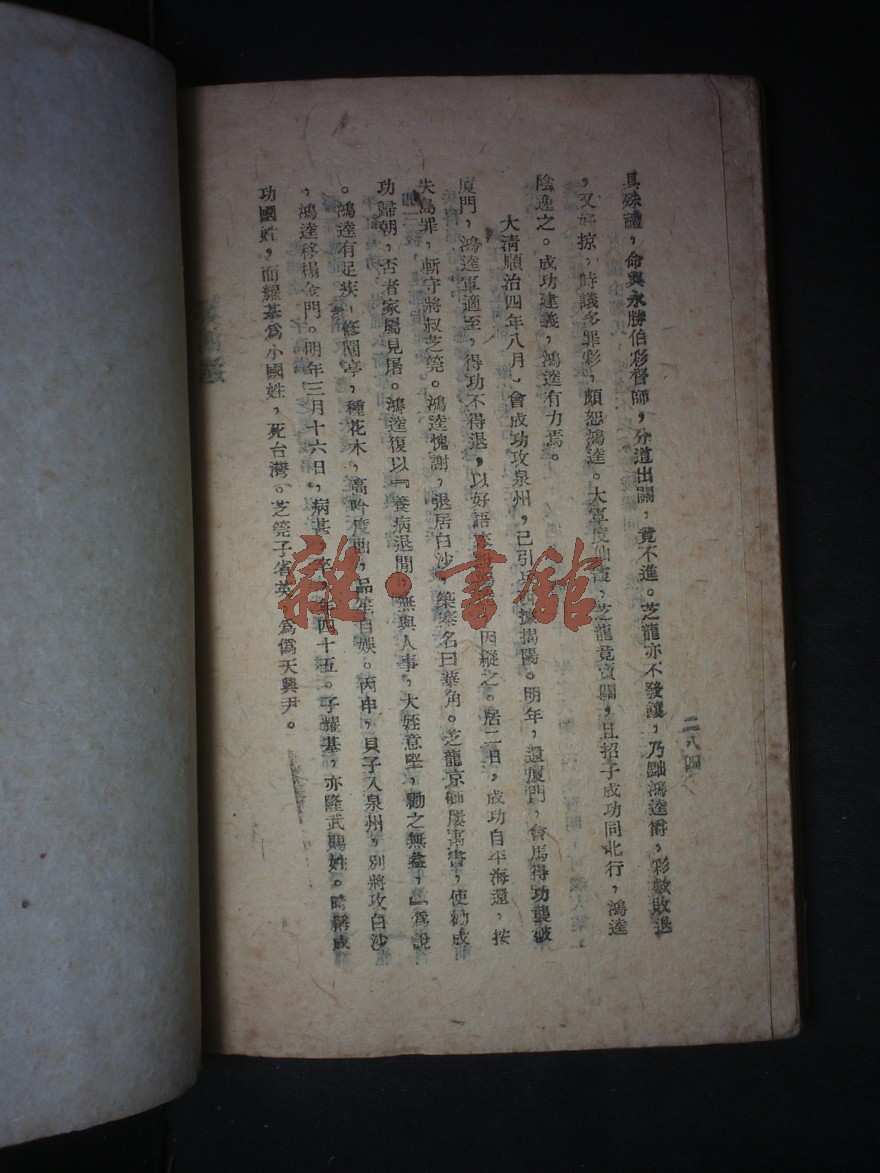 二八四
具殊禮，命與永勝伯彩督師，分道出關，竟不進。芝龍亦不發餉，乃黜鴻逵爵，彩敗退
，又好掠，時議多罪彩，頗恕鴻逵。大軍度仙霞，芝龍竟賣關，且招子成功同北行，鴻逵
陰逸之。成功建義，鴻逵有力焉。
大清順治四年八月，會成功攻泉州，已引兵據揭陽。明年，還廈門，會馬得功襲破
廈門，鴻逵軍適至，得功不得退，以好語 因縱之。居二日，成功自平海還，按
失島罪，斬守將叔芝莞。鴻逵愧謝，退居白沙，築寨名曰華角。芝龍京師屢寓書，使勸成
功歸朝，否者家屬見屠。鴻逵復以『養病退閒，無與人事，大姪意堅，勸之無益，』為說
。鴻逵有足疾，修園亭，種花木，高吟度曲，品笙自娛。丙申，貝子入泉州，別將攻白沙
，鴻逵移榻金門。明年三月十六日，病甚，卒，年四十五。子耀基，亦隆武賜姓。時稱成
功國姓，而耀基為小國姓，死台灣。芝莞子省英，為偽天興尹。
雜·書館